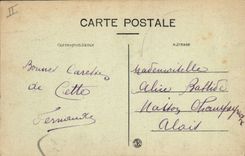 II
CARTE POSTALE
Correspondance
Adresse
Bonnes Caresses
de Cette
Fernande
Mademoiselle
Alice
Alais